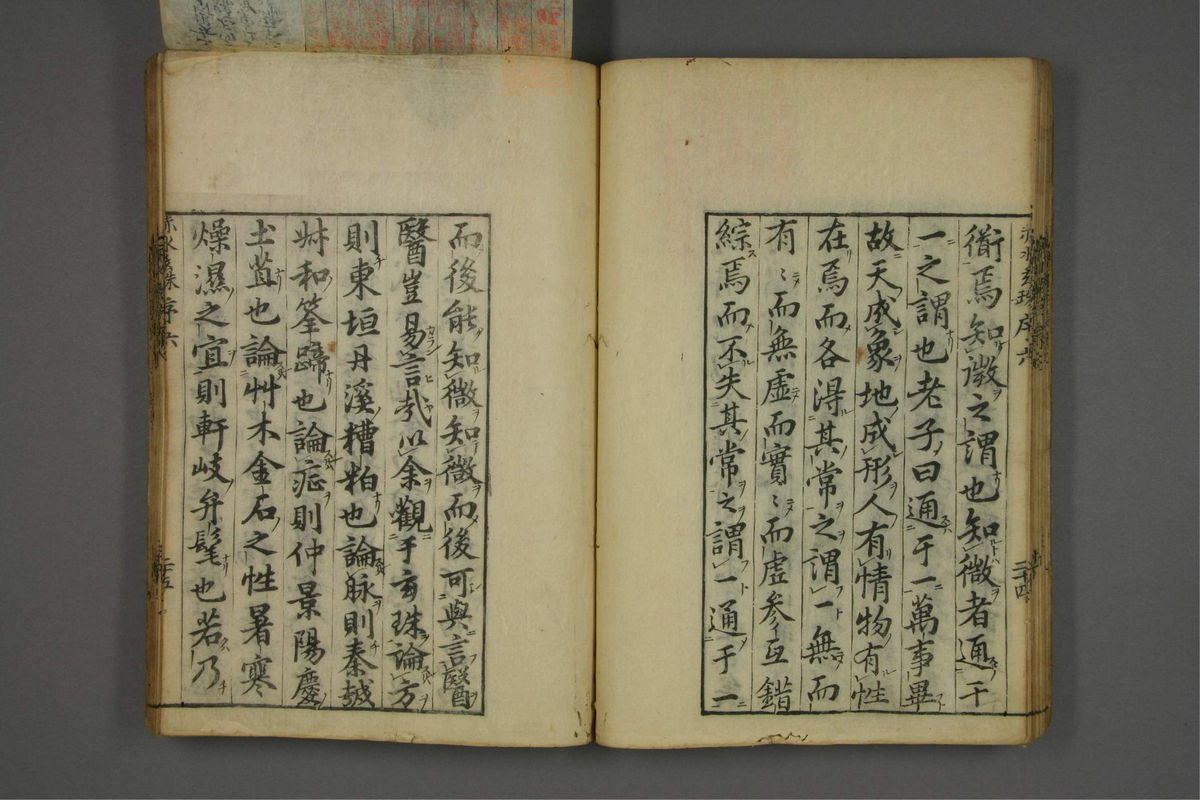 衞焉知微之謂也知微者通于
一之謂也老子曰通于一萬事畢
故天成象地成形人有情物有性
在焉而各得其常之謂一無而
有〻而無虛而實〻而虛參互錯
綜焉而不失其常之謂一通于一
而後能知微知微而後可與言醫
醫豈易言哉以余觀于玄珠論方
則東垣丹溪糟粕也論脉則秦越
舛和筌蹄也論症則仲景陽慶
土苴也論艸木金石之性暑寒
燥濕之宜則軒岐弁髦也若乃